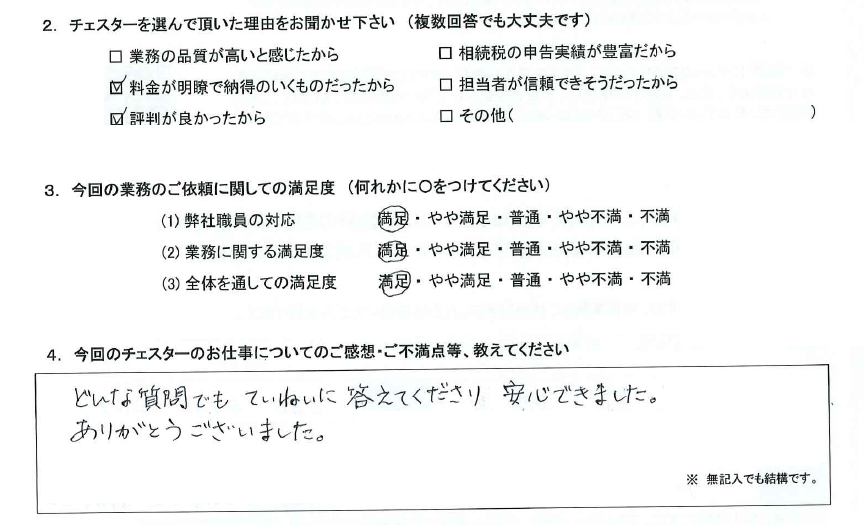 2. チェスターを選んで頂いた理由をお聞かせ下さい（複数回答でも大丈夫です）
□ 業務の品質が高いと感じたから □ 相続税の申告実績が豊富だから
☑ 料金が明瞭で納得のいくものだったから □ 担当者が信頼できそうだったから
☑ 評判が良かったから □ その他( )
3. 今回の業務のご依頼に関しての満足度（何れかに〇をつけてください）
(1) 弊社職員の対応 満足・やや満足・普通・やや不満・不満
(2) 業務に関する満足度 満足・やや満足・普通・やや不満・不満
(3) 全体を通しての満足度 満足・やや満足・普通・やや不満・不満
4. 今回のチェスターのお仕事についてのご感想・ご不満点等、教えてください
どんな質問でも ていねいに 答えてくださり 安心できました。
ありがとうございました。
※ 無記入でも結構です。